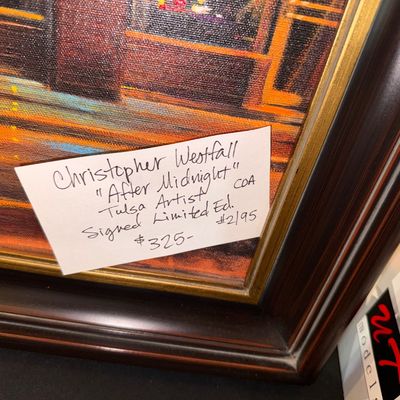 Christopher Westfall
"After Midnight"
Tulsa Artist COA
Signed Limited Ed.
#2/95
$325-
models